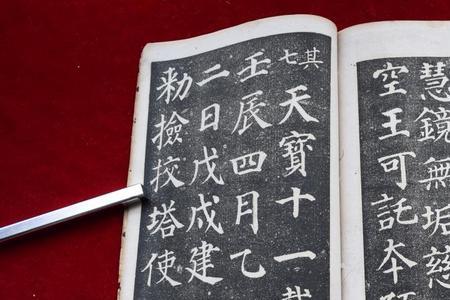 慧鏡無垢慈
空王可託夲願
其七
天寶十一載
壬辰四月乙
二日戊戌建
勑撿挍塔使